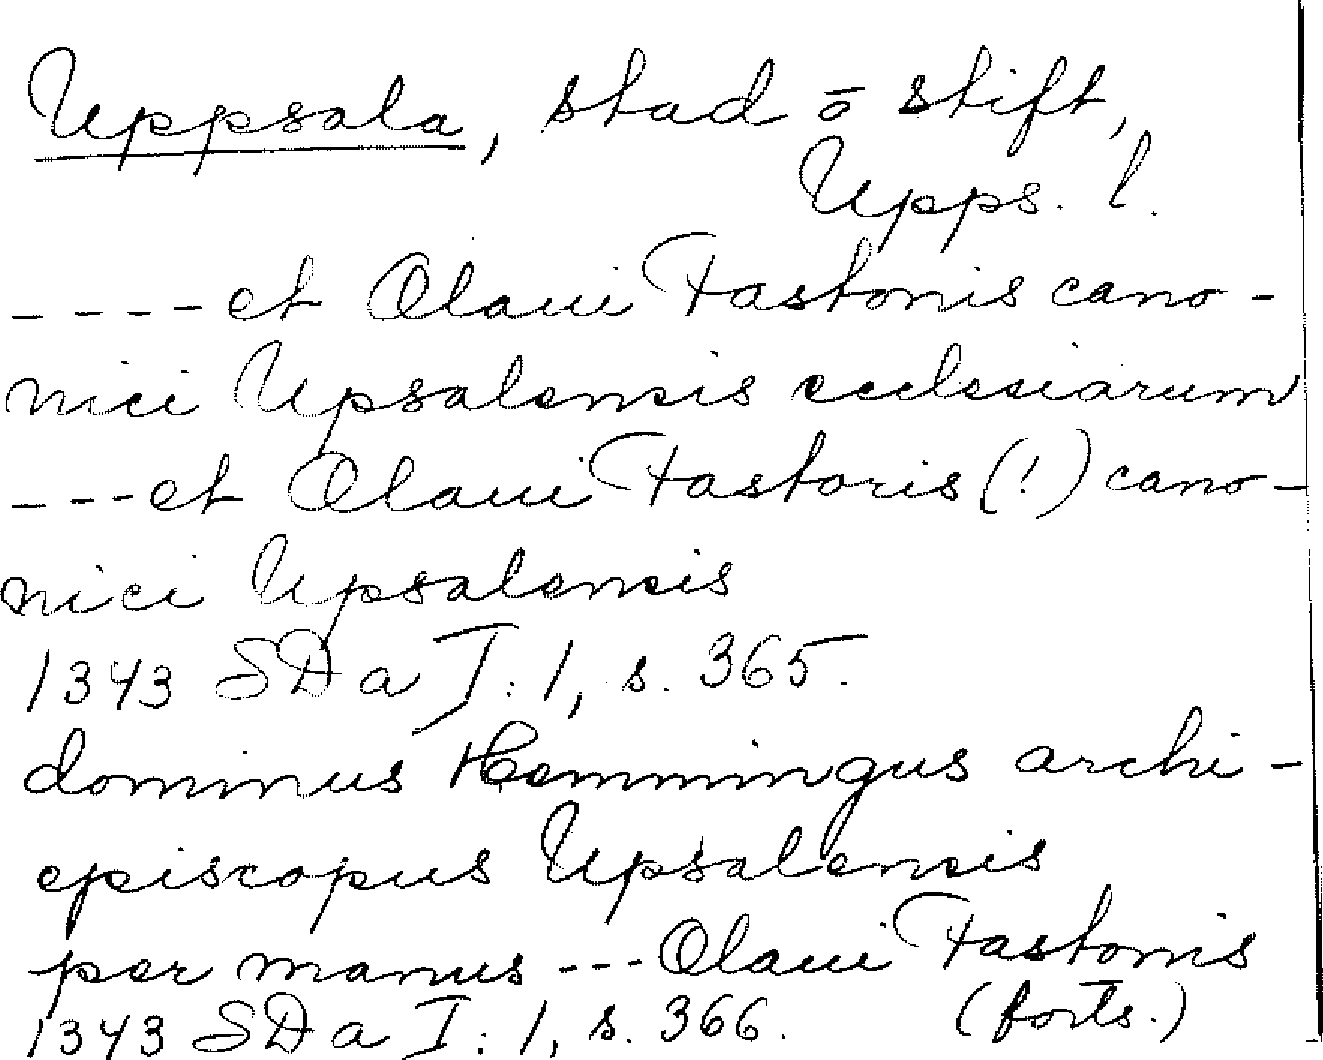 Uppsala, stad o stift,
Upps. l.
---- et Olaui Fastonis cano-
nici Upsalensis ecclesiarum
--- et Olaui Fastoris (!) cano-
nici Upsalensis
1343 SDa I: 1, s. 365.
dominus Hemmingus archi-
episcopus Upsalensis
per manus --- Olaui Fastonis
1343 SDa I: 1, s. 366. (forts.)